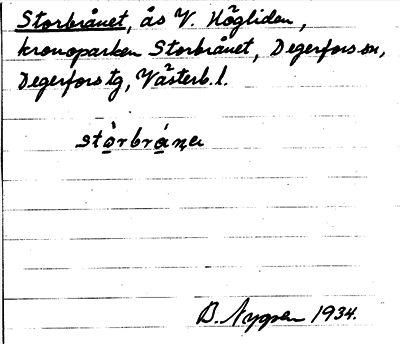 Storbrånet, ås V. Högliden,
kronoparken Storbrånet, Degerfors sn,
Degerfors tg, Västerb. l.
B. Nygren 1934.